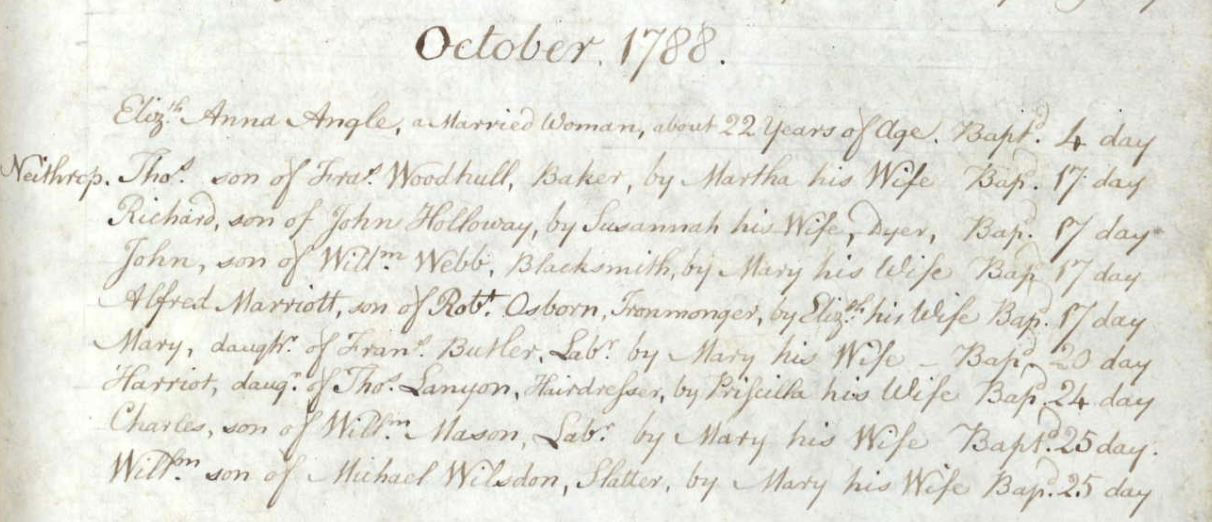 October. 1788.
Eliz.th Anna Angle, a Married Woman, about 22 Years of Age. Bapt.d 4 day
Neithrop. Tho.s son of Fra.s Woodhull, Baker, by Martha his Wife Bap.d 17 day
Richard, son of John Holloway, by Susannah his Wife, Dyer, Bap.d 17 day
John, son of Will.m Webb, Blacksmith, by Mary his Wife Bap.d 17 day
Alfred Marriott, son of Rob.t Osborn, Ironmonger, by Eliz.th his Wife Bap.d 17 day
Mary, daugh.r of Fran.s Butler, Lab.r by Mary his Wife – Bap.d 20 day
Harriot, daug.r of Tho.s Lanyon, Hairdreſser, by Priſcilla his Wife Bap.d 24 day
Charles, son of Will.m Mason, Lab.r by Mary his Wife Bapt.d 25 day.
Will.m son of Michael Wilsdon, Slatter, by Mary his Wife Bap.d 25 day